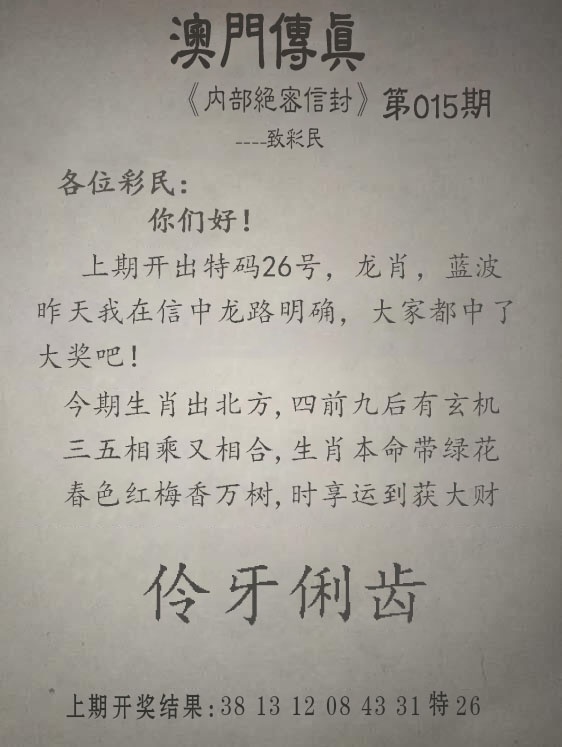 澳門傳真
《内部絕密信封》第015期
----致彩民
各位彩民：
你们好！
上期开出特码26号，龙肖，蓝波
昨天我在信中龙路明确，大家都中了
大奖吧！
今期生肖出北方,四前九后有玄机
三五相乘又相合,生肖本命带绿花
春色红梅香万树,时享运到获大财
伶牙俐齿
上期开奖结果:38 13 12 08 43 31 特 26